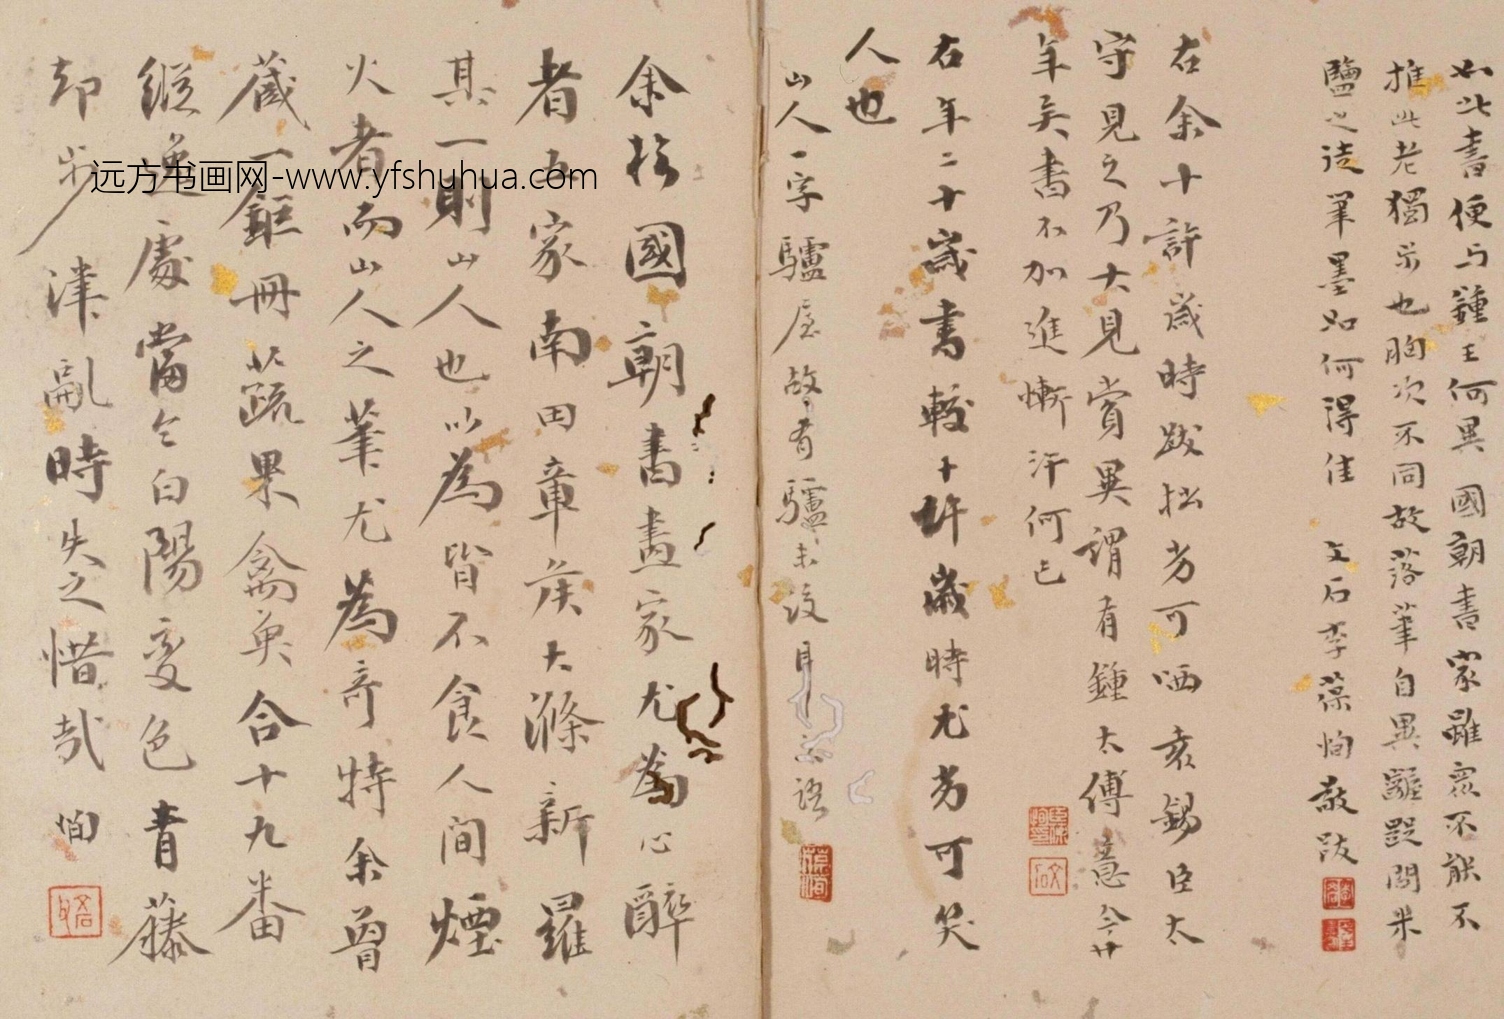 如此書便与鍾王何異 國朝書家雖衆不能不
推此老獨步也胸次不同故落筆自異齷齪間米
鹽之徒筆墨如何得佳 文石李葆恂敬跋
右余十許歲時跋拙劣可哂袁錫臣太
守見之乃大見賞異謂有鍾太傅意今廿
年矣書不加進慚汗何已
右年二十歲書較十許歲時尤劣可笑
人也
山人一字驢屋故有驢 恂 語
余於國朝書畫家尤為心醉
者五家南田章侯大滌新羅
其一則山人也以為皆不食人間煙
火者而山人之筆尤為奇特余曾
蔵一鉅冊蔬果禽魚合十九番
縱逸處當令白陽變色青藤
却步 津亂時失之惜哉 恂
远方书画网-www.yfshuhua.com